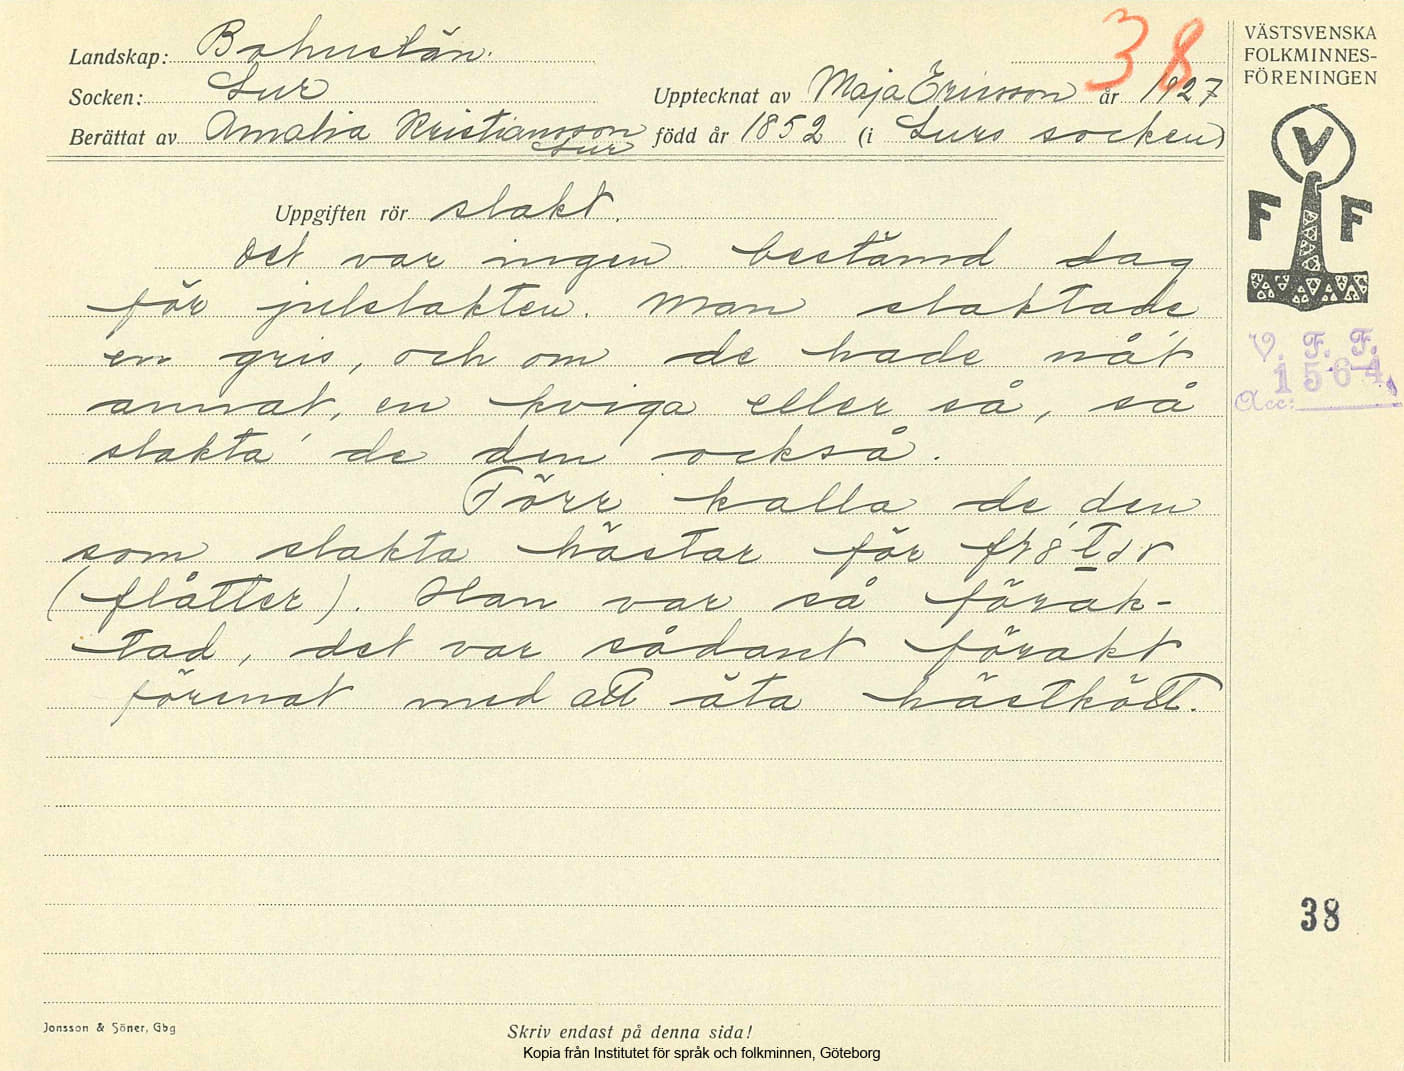 Landskap: Bohuslän.
Socken: Lur
Upptecknat av Maja Ericsson år 1927
Berättat av Amalia Kristiansson Lur född år 1852 (i Lurs socken)
38
Uppgiften rör slakt.
Det var ingen bestämd dag
för julslakten. Man slaktade
en gris, och om de hade nå't
annat, en kviga eller så, så
slakta' de den också.
Förr kalla de den
som slakta hästar för
(flåtter). Han var så förak-
tad, det var sådant förakt
förenat med att äta hästkött.
VÄSTSVENSKA
FOLKMINNES-
FÖRENINGEN
V
F F
V. F. F.
1564
Acc:
38
Jonsson & Söner, Gbg
Skriv endast på denna sida!
Kopia från Institutet för språk och folkminnen, Göteborg